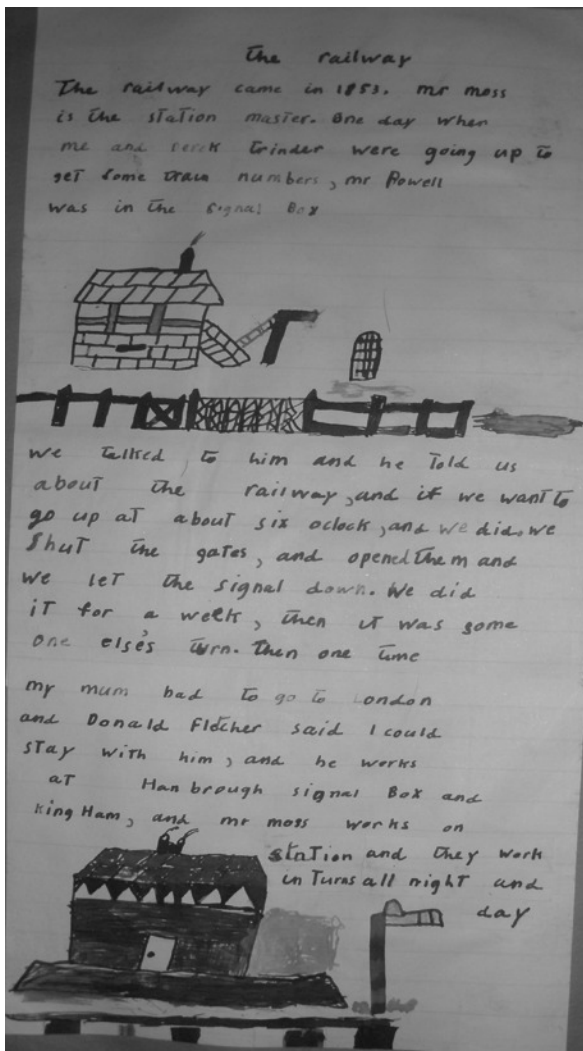 the railway
The railway came in 1853. mr moss
is the station master. One day when
me and Derek trinder were going up to
get some train numbers, mr Powell
was in the signal Box
we talked to him and he told us
about the railway, and if we want to
go up at about six oclock, and we did. we
shut the gates, and opened them and
we let the signal down. We did
it for a week, then it was some
one else's turn. then one time
my mum had to go to London
and Donald Fletcher said I could
stay with him, and he works
at Hanbrough signal Box and
king Ham, and mr moss works on
station and they work
in Turns all night and
day